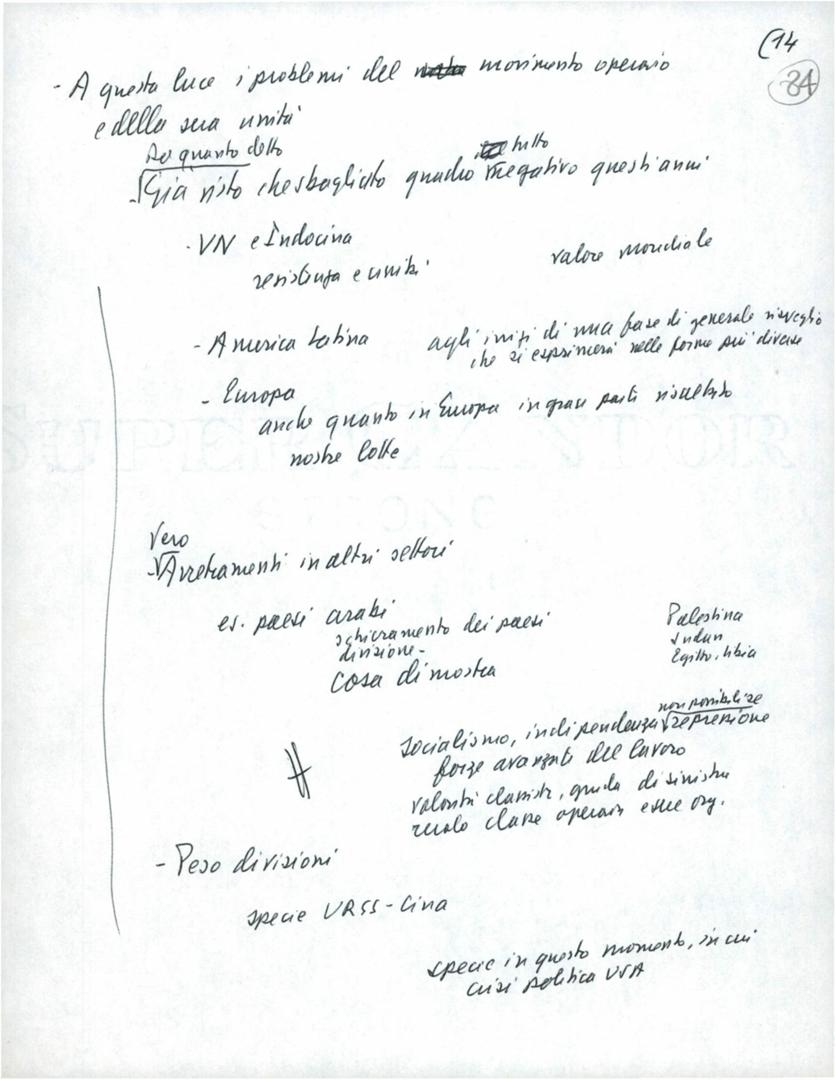 (14
84
- A questa luce i problemi del movimento operaio
e della sua unità
Da quanto detto
- Già visto che sbagliato quadro tutto negativo questi anni
- VN e Indocina
resistenza e unità
valore mondiale
- America Latina
agli inizi di una fase di generale risveglio
che si esprimerà nelle forme più diverse
- Europa
anche quanto in Europa in gran parte risultato
nostre lotte
Vero
- Arretramenti in altri settori
es. paesi arabi
schieramento dei paesi
divisione -
cosa dimostra
Palestina
Sudan
Egitto, Libia
non possibile
socialismo, indipendenza repressione
forze avanzate del lavoro
volontà classista, guida di sinistra
ruolo classe operaia e sue org.
- Peso divisioni
specie URSS - Cina
specie in questo momento, in cui
crisi politica USA